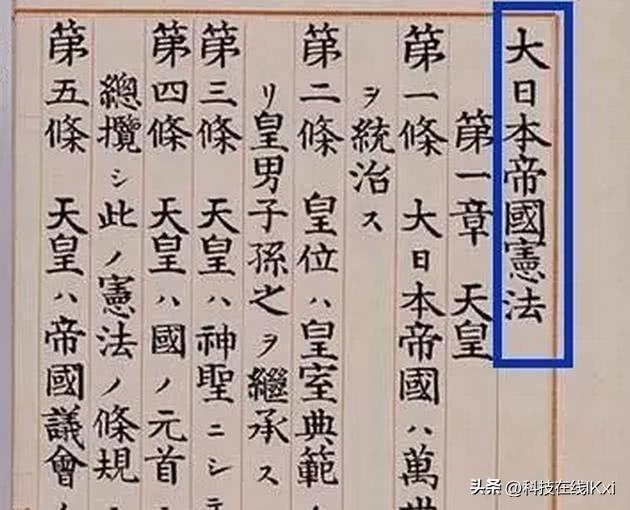 大日本帝國憲法
第一章 天皇
第一條 大日本帝國ハ萬世
ヲ統治ス
第二條 皇位ハ皇室典範
リ皇男子孫之ヲ繼承ス
第三條 天皇ハ神聖ニシテ
第四條 天皇ハ國ノ元首
總攬シ此ノ憲法ノ條規
第五條 天皇ハ帝國議會ノ
头条 @科技在线IKxi